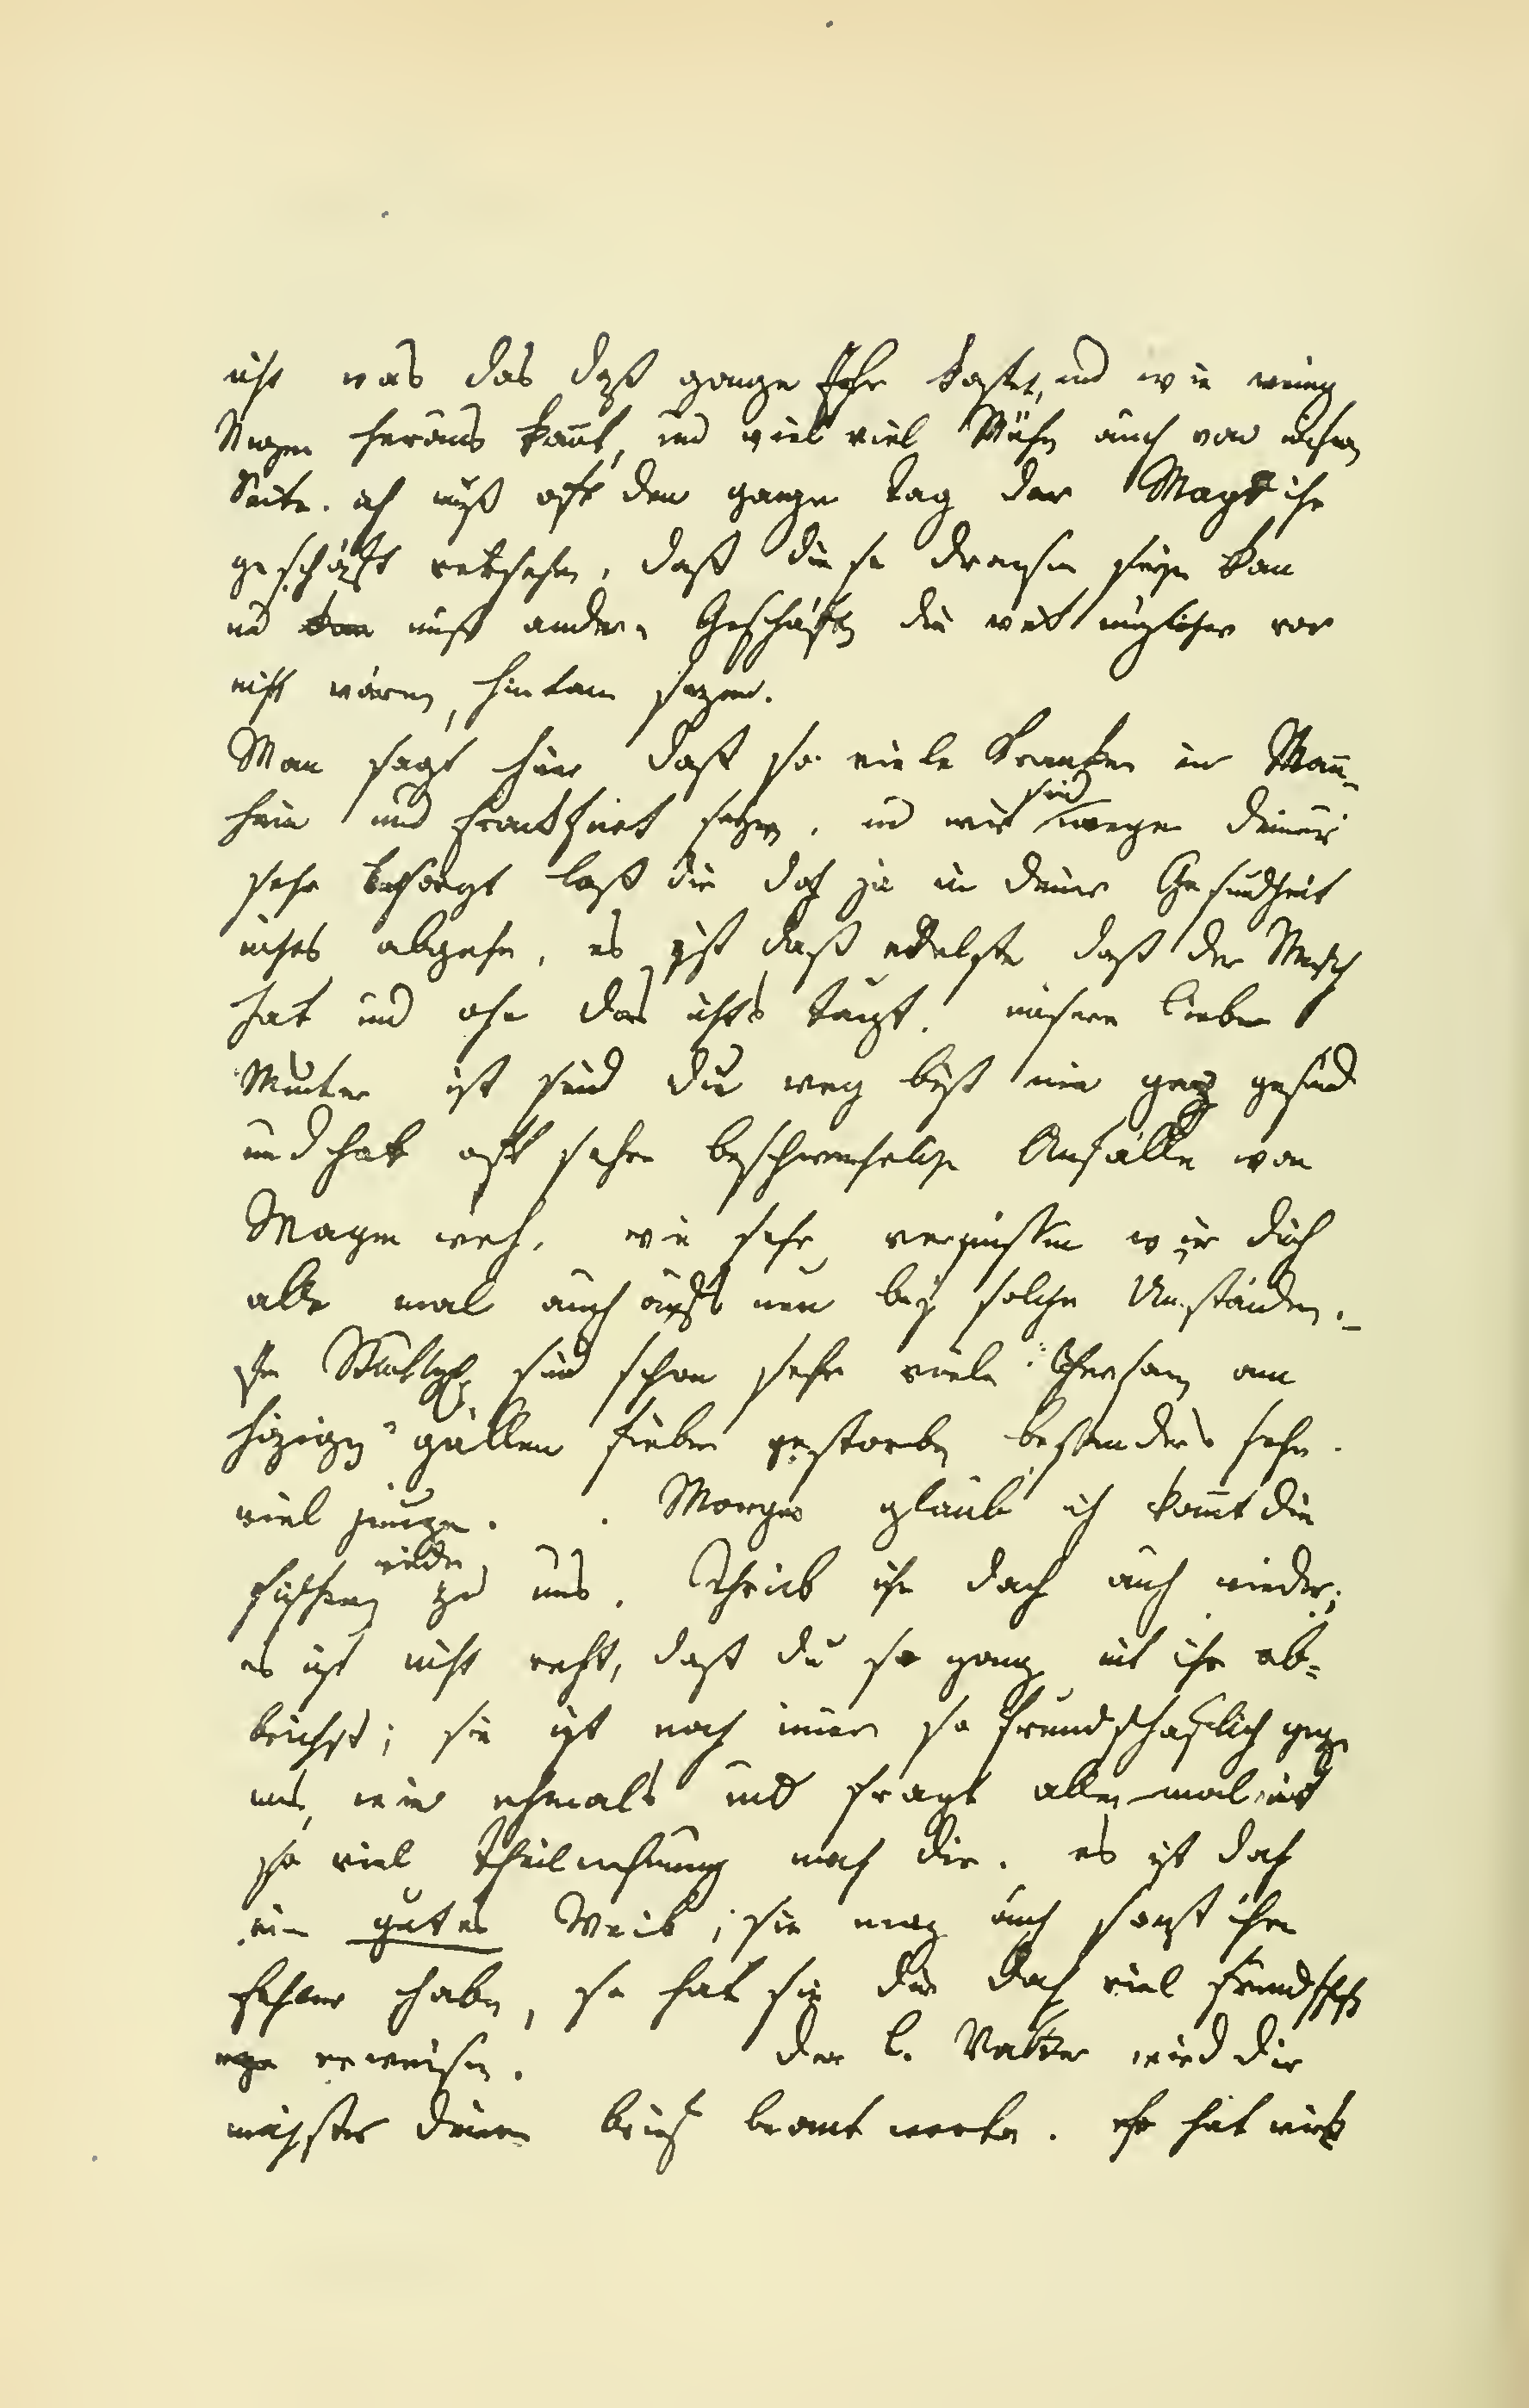 nicht was das daß ganze Jahr kostet, und wie wenig
Nuzen heraus kom̄t, und viel viel Mühe auch von unsrer
Seite. ich muß oft den ganzen tag der Magt ihr
geschäft versehen, daß diese draussen seyn kan
und muß andere Geschäfte die weit nüzlicher vor
mich wären, hintan sezen.
Man sagt hier daß so viele Kranken in Man̄-
heim und Franckfurt seyen, und wir sind wegen deiner
sehr besorgt laß dir doch ja in deiner Gesundheit
nichts abgehen, es ist daß edelste daß der Mensch
hat und ohne das nichts taugt. unsere liebe
Mutter ist seid du weg bist nie ganz gesund
und hat oft sehre beschwerliche Anfälle von
Magen weh. wie sehr vermissen wir dich
alle mal auch nun bey solchen Umständen.
In Stuttgh sind schon sehr viele Persohnen am
hizigen gallen fieber gestorben besonders sehr
viel junge. Morgen glaub ich kom̄t die
Vischerin wieder zu uns. Schreib ihr doch auch wieder;
es ist nicht recht, daß du so ganz mit ihr ab-
brichst; sie ist noch im̄er so freundschaftlich gegen
uns, wie ehmals und fragt allemal mit
so viel theilnehmung nach dir. es ist doch
ein gutes Weib; sie mag auch sonst ihre
fehler haben, so hat sie dir doch viel freundschafft
erwiesen. der l. Vatter wird dir
nächstes deinen brief beantworten. Er hat